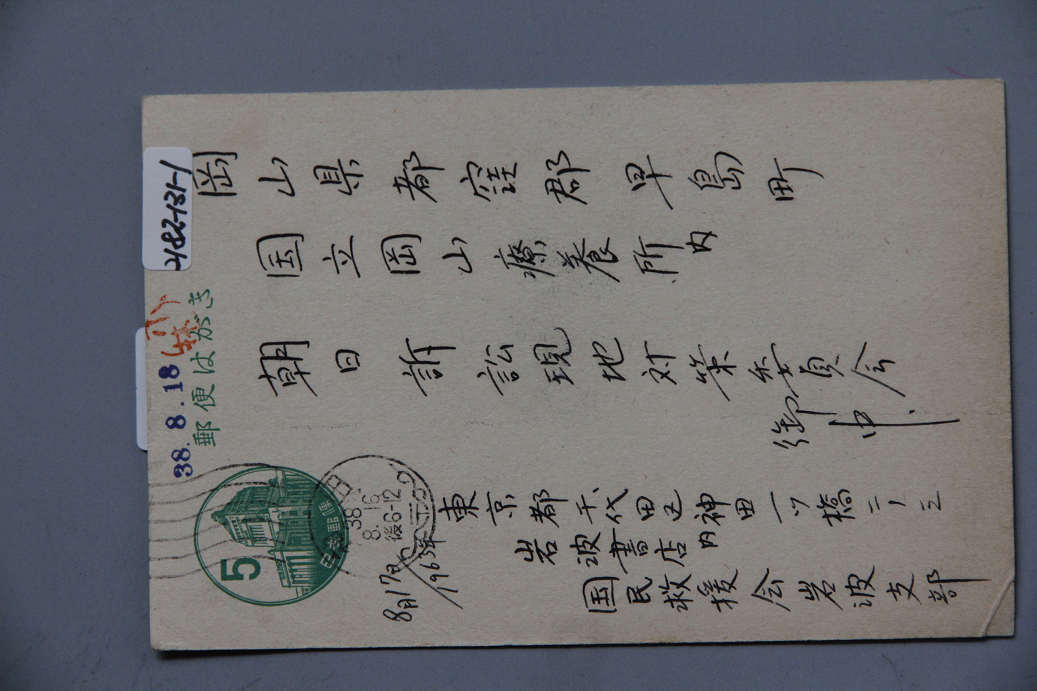 482-131-1
38.8.18
郵便はがき
岡山県都窪郡早島町
国立岡山療養所内
朝日訴訟現地対策委員会
御中
5
日本郵便
38
8.16
後6-12
東京都千代田区神田一ツ橋二ノ三
岩波書店内
国民救援会岩波支部
8月17日
1963年